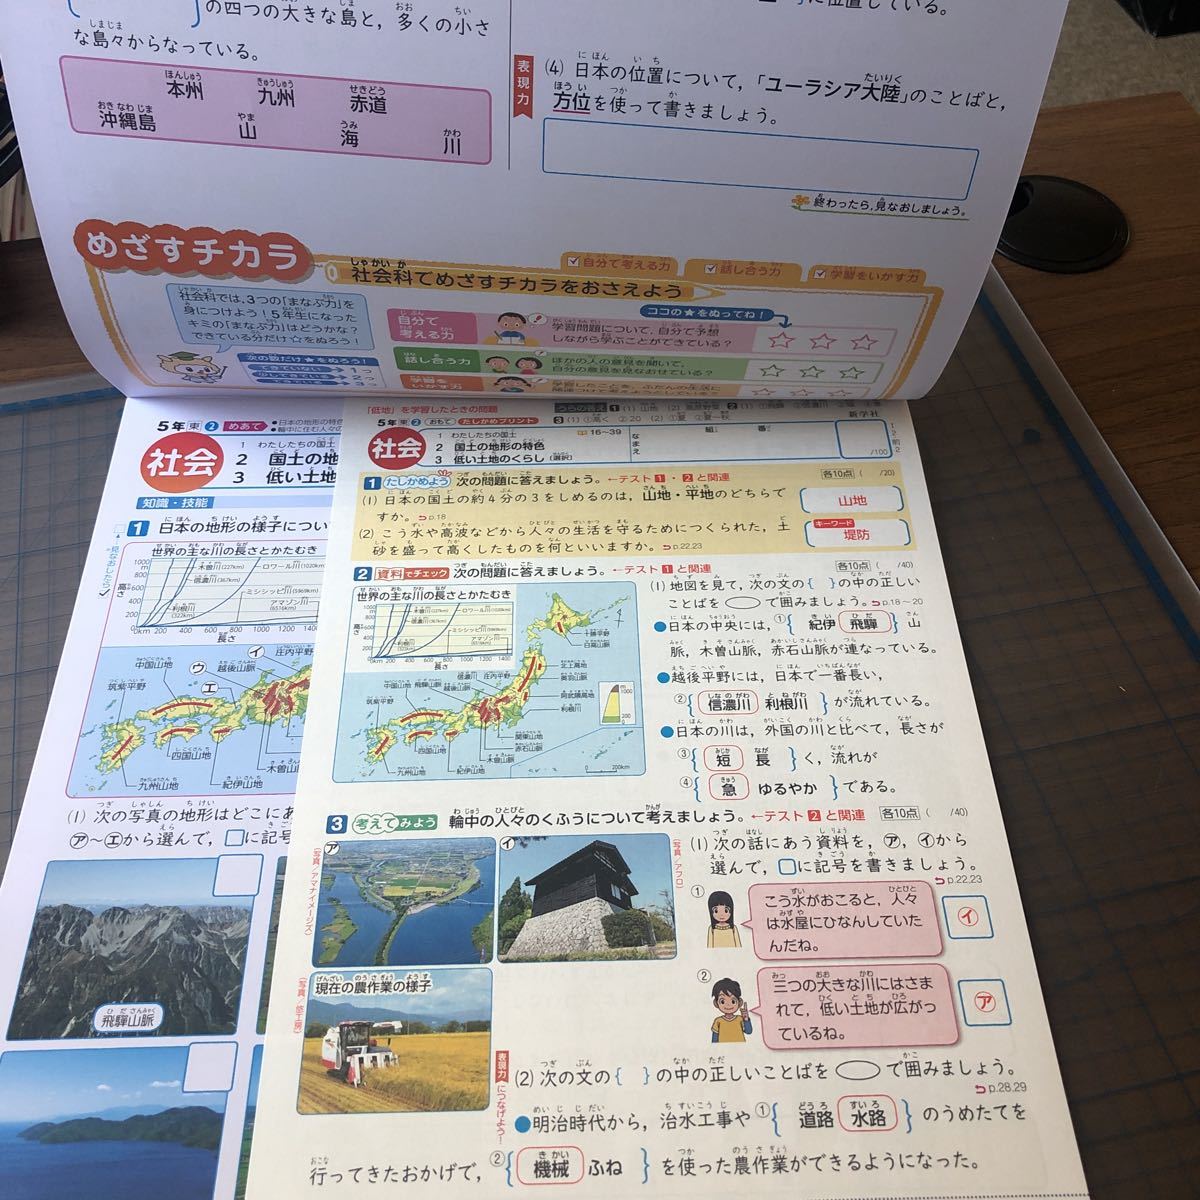 の四つの大きな島と，多くの小さ
な島々からなっている。
本州 九州 赤道
沖縄島 山 海 川
に位置している。
表現力
(4) 日本の位置について，「ユーラシア大陸」のことばと，
方位を使って書きましょう。
終わったら，見なおしましょう。
めざすチカラ
社会科でめざすチカラをおさえよう
自分で考える力
話し合う力
学習をいかす力
社会科では，3つの「まなぶ力」を
身につけよう！5年生になった
キミの「まなぶ力」はどうかな？
できている分だけ☆をぬろう！
次の数だけ★をぬろう！
できていない 1つ
少しできている 2つ
できている 3つ
ココの★をぬってね！
自分で
考える力
学習問題について，自分で予想
しながら学ぶことができている？
話し合う力
ほかの人の意見を聞いて，
自分の意見を見なおせている？
学習を
いかす力
学習したことを，ふだんの生活に
5年 東 2 めあて
社会
2 国土の地
3 低い土地
知識・技能
1 日本の地形の様子につい
見なおしたら
世界の主な川の長さとかたむき
木曽川(227km)
信濃川(367km)
ロワール川(1020km)
ミシシッピ川(5969km)
アマゾン川(6516km)
利根川(322km)
高さ
長さ
中国山地 ウ 越後山脈 イ 庄内平野
筑紫平野 エ
四国山地
九州山地 紀伊山地 木曽山脈
(1) 次の写真の地形はどこにあ
㋐〜㋓から選んで，□に記号
飛驒山脈
「低地」を学習したときの問題
うらの答え
新学社
5年 東 2 おもて たしかめプリント
社会
1 わたしたちの国土
2 国土の地形の特色
3 低い土地のくらし〔選択〕
16〜39
なまえ
組 番
/100
1 たしかめよう 次の問題に答えましょう。←テスト1・2と関連
各10点 ( /20)
(1) 日本の国土の約4分の3をしめるのは，山地・平地のどちらで
すか。p.18
山地
(2) こう水や高波などから人々の生活を守るためにつくられた，土
砂を盛って高くしたものを何といいますか。p.22,23
キーワード
堤防
2 資料でチェック 次の問題に答えましょう。←テスト1と関連
各10点 ( /40)
世界の主な川の長さとかたむき
木曽川(227km)
信濃川(367km)
ロワール川(1020km)
ミシシッピ川(5969km)
アマゾン川(6516km)
利根川(322km)
高さ
0km 200 400 600 800 1000 1200 1400
長さ
十勝平野
日高山脈
信濃川 庄内平野
中国山地 飛驒山脈 越後山脈
北上高地
奥羽山脈
阿武隈高地
利根川
筑紫平野
関東平野
赤石山脈
四国山地 木曽山脈
九州山地 紀伊山地
0 200km
(1) 地図を見て，次の文の｛ ｝の中の正しい
ことばを◯で囲みましょう。p.18〜20
●日本の中央には，①｛紀伊 飛驒｝山
脈，木曽山脈，赤石山脈が連なっている。
●越後平野には，日本で一番長い，
②｛信濃川 利根川｝が流れている。
●日本の川は，外国の川と比べて，長さが
③｛短 長｝く，流れが
④｛急 ゆるやか｝である。
3 考えてみよう 輪中の人々のくふうについて考えましょう。←テスト2と関連
各10点 ( /40)
㋐
(写真／アマナイメージズ)
㋑
(写真／アフロ)
現在の農作業の様子
(写真／悠工房)
(1) 次の話にあう資料を，㋐，㋑から
選んで，□に記号を書きましょう。
p.22,23
①
こう水がおこると，人々
は水屋にひなんしていた
んだね。
㋑
②
三つの大きな川にはさま
れて，低い土地が広がっ
ているね。
㋐
表現力につなげよう！
(2) 次の文の｛ ｝の中の正しいことばを◯で囲みましょう。
p.28,29
●明治時代から，治水工事や①｛道路 水路｝のうめたてを
行ってきたおかげで，②｛機械 ふね｝を使った農作業ができるようになった。